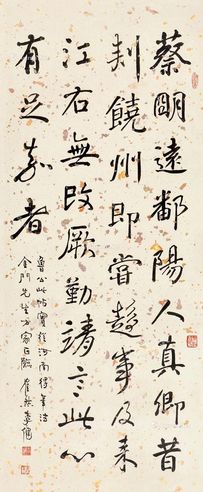 蔡明遠鄱陽人真卿昔
刺饒州即嘗趨事及来
江右無改厥勤靖言此心
有足嘉者
魯公此帖實於河南得筆法
金門先生方家正